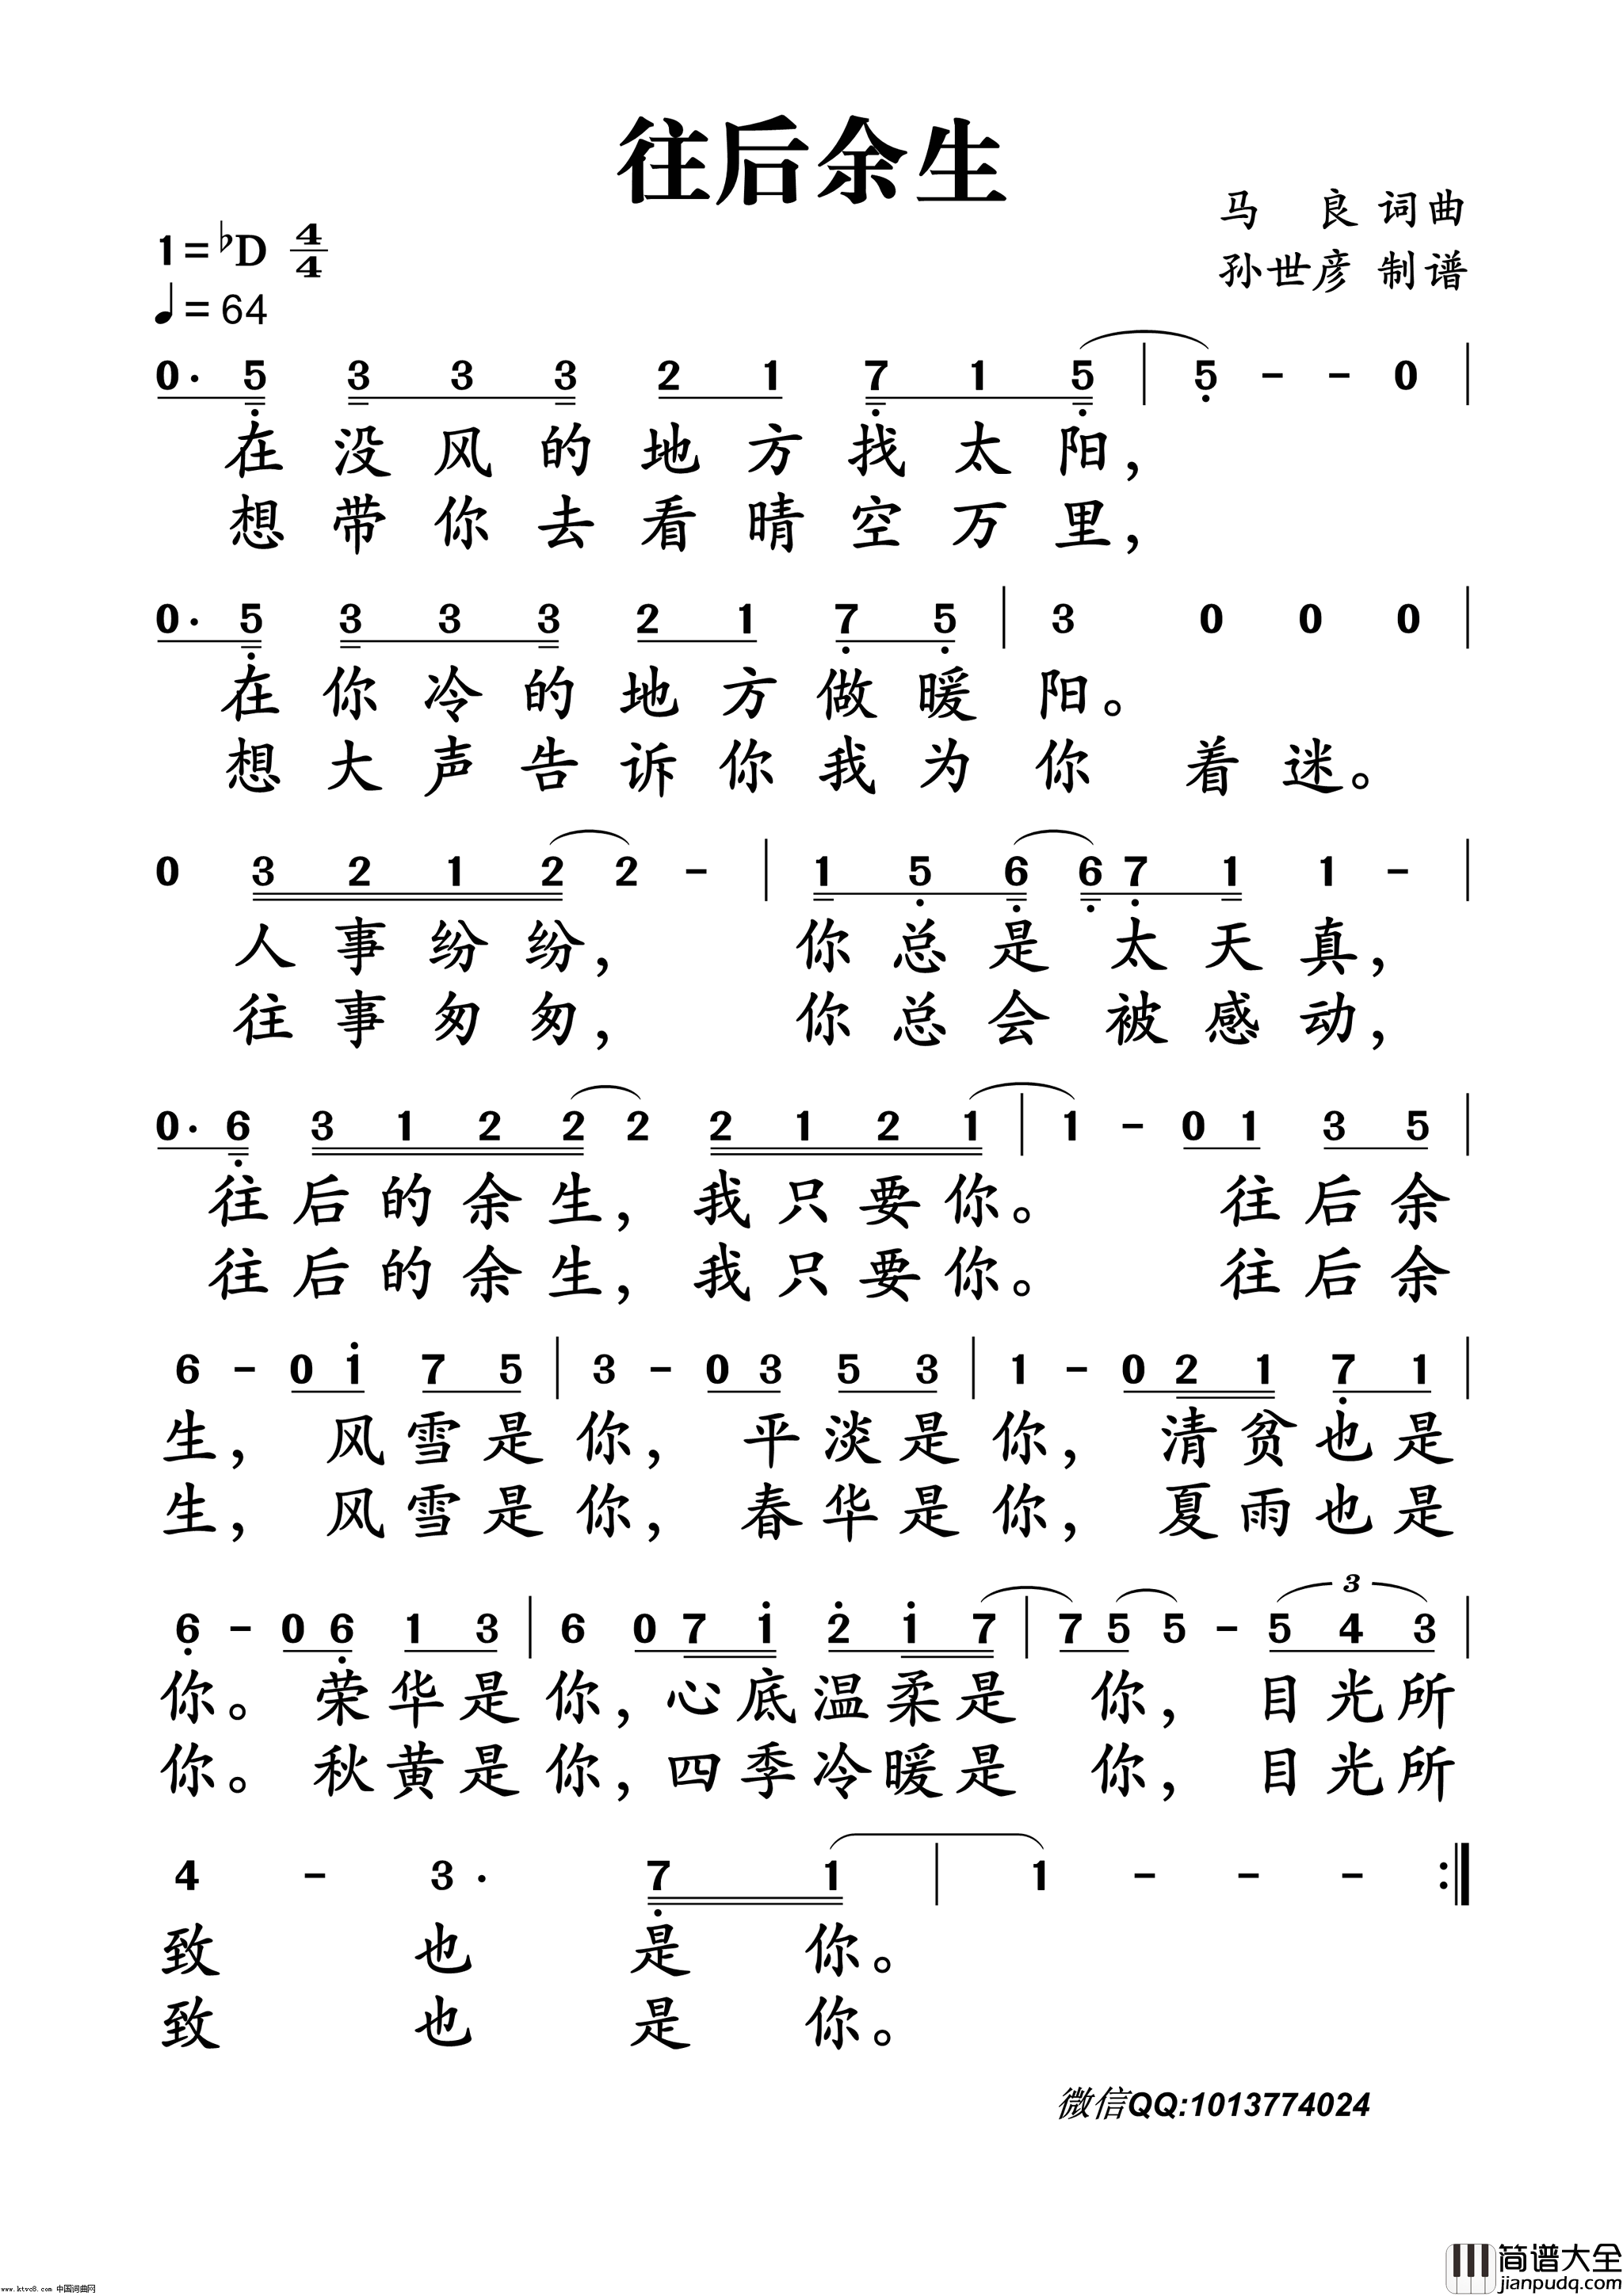 往后余生
马 良 词曲
1=♭D 4/4
孙世彦 制谱
♩=64
0· 5 3 3 3 2 1 7 1 5 | 5 - - 0 |
在没风的地方找太阳，
想带你去看晴空万里，
0· 5 3 3 3 2 1 7 5 | 3 0 0 0 |
在你冷的地方做暖阳。
想大声告诉你我为你着迷。
0 3 2 1 2 2 - | 1 5 6 6 7 1 1 - |
人事纷纷，你总是太天真，
往事匆匆，你总会被感动，
0· 6 3 1 2 2 2 2 1 2 1 | 1 - 0 1 3 5 |
往后的余生，我只要你。往后余
往后的余生，我只要你。往后余
6 - 0 1 7 5 | 3 - 0 3 5 3 | 1 - 0 2 1 7 1 |
生，风雪是你，平淡是你，清贫也是
生，风雪是你，春华是你，夏雨也是
3
6 - 0 6 1 3 | 6 0 7 1 2 1 7 | 7 5 5 - 5 4 3 |
你。荣华是你，心底温柔是你，目光所
你。秋黄是你，四季冷暖是你，目光所
4 - 3· 7 1 | 1 - - - :|
致也是你。
致也是你。
微信QQ:1013774024
简谱大全
jianpudq.com
www.ktvc8.com 中国词曲网